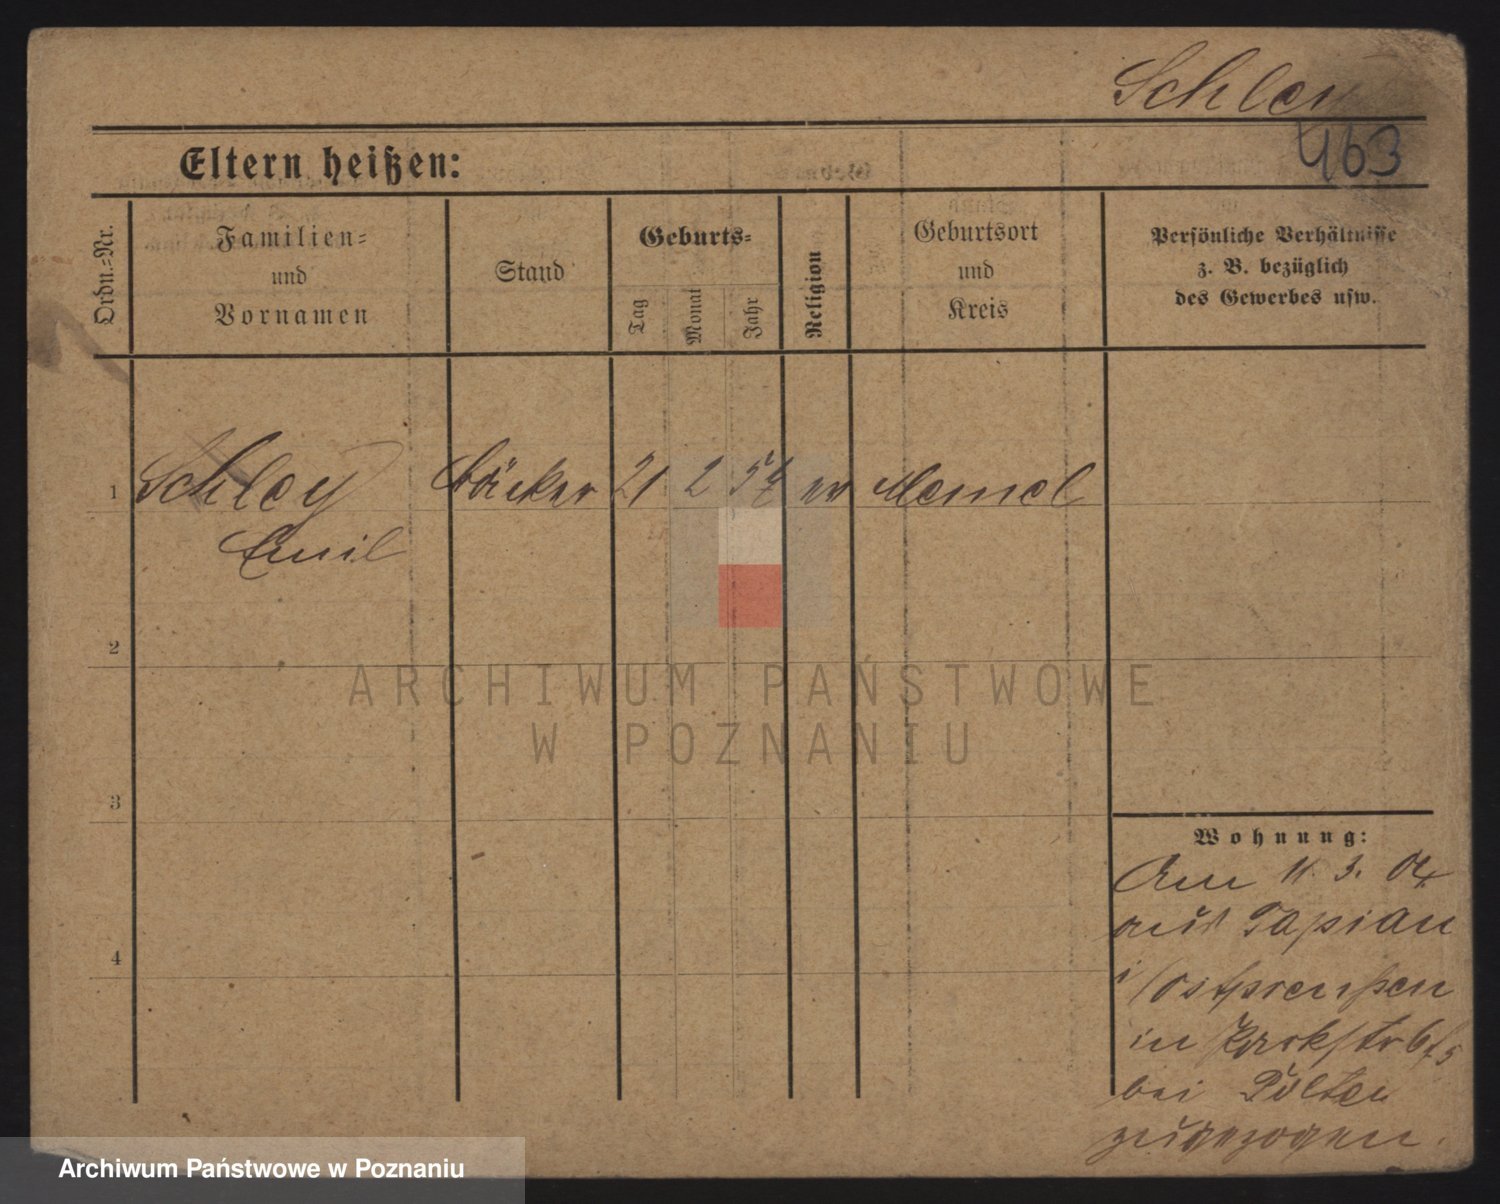 Schley
463
Eltern heißen:
Ordn.-Nr.
Familien-
und
Vornamen
Stand
Geburts-
Tag
Monat
Jahr
Religion
Geburtsort
und
Kreis
Persönliche Verhältnisse
z. B. bezüglich
des Gewerbes usw.
1 Schley Bäcker 21 2 54 ev Memel
Emil
2
3
4
ARCHIWUM PAŃSTWOWE
W POZNANIU
Wohnung:
Am 11. 3. 04
aus Tapiau
i/Ostpreußen
in Parkstr
bei
zugezogen.
Archiwum Państwowe w Poznaniu